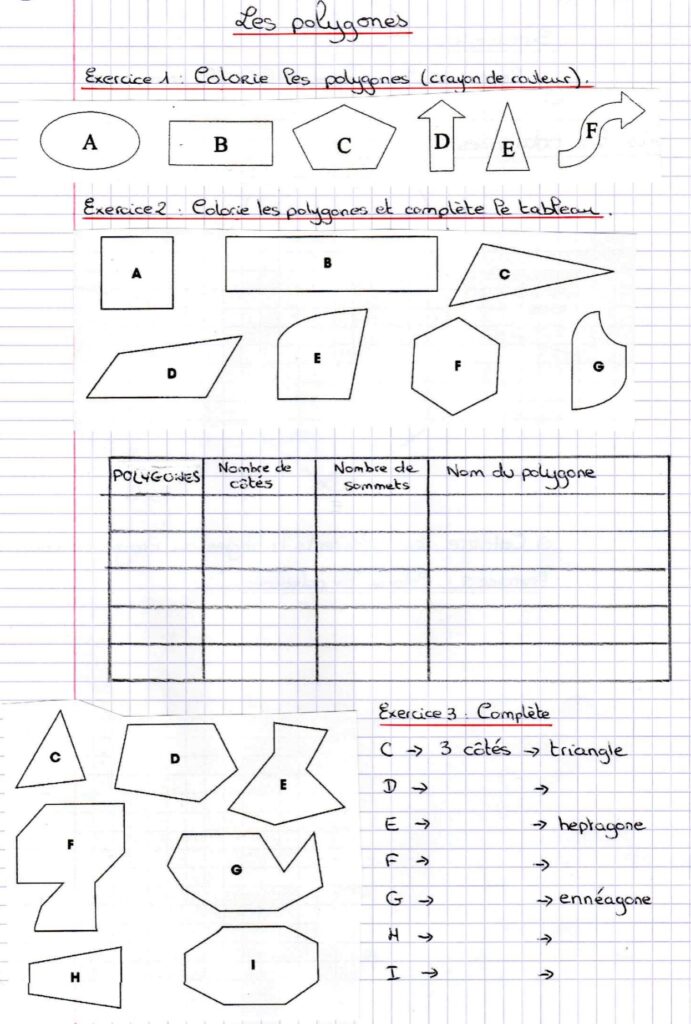 Les polygones
Exercice 1 : Colorie les polygones (crayon de couleur).
A B C D E F
Exercice 2 : Colorie les polygones et complète le tableau.
A B C
D E F G
POLYGONES Nombre de côtés Nombre de sommets Nom du polygone
C D E
F G
H I
Exercice 3 : Complète
C → 3 côtés → triangle
D → →
E → → heptagone
F → →
G → → ennéagone
H → →
I → →